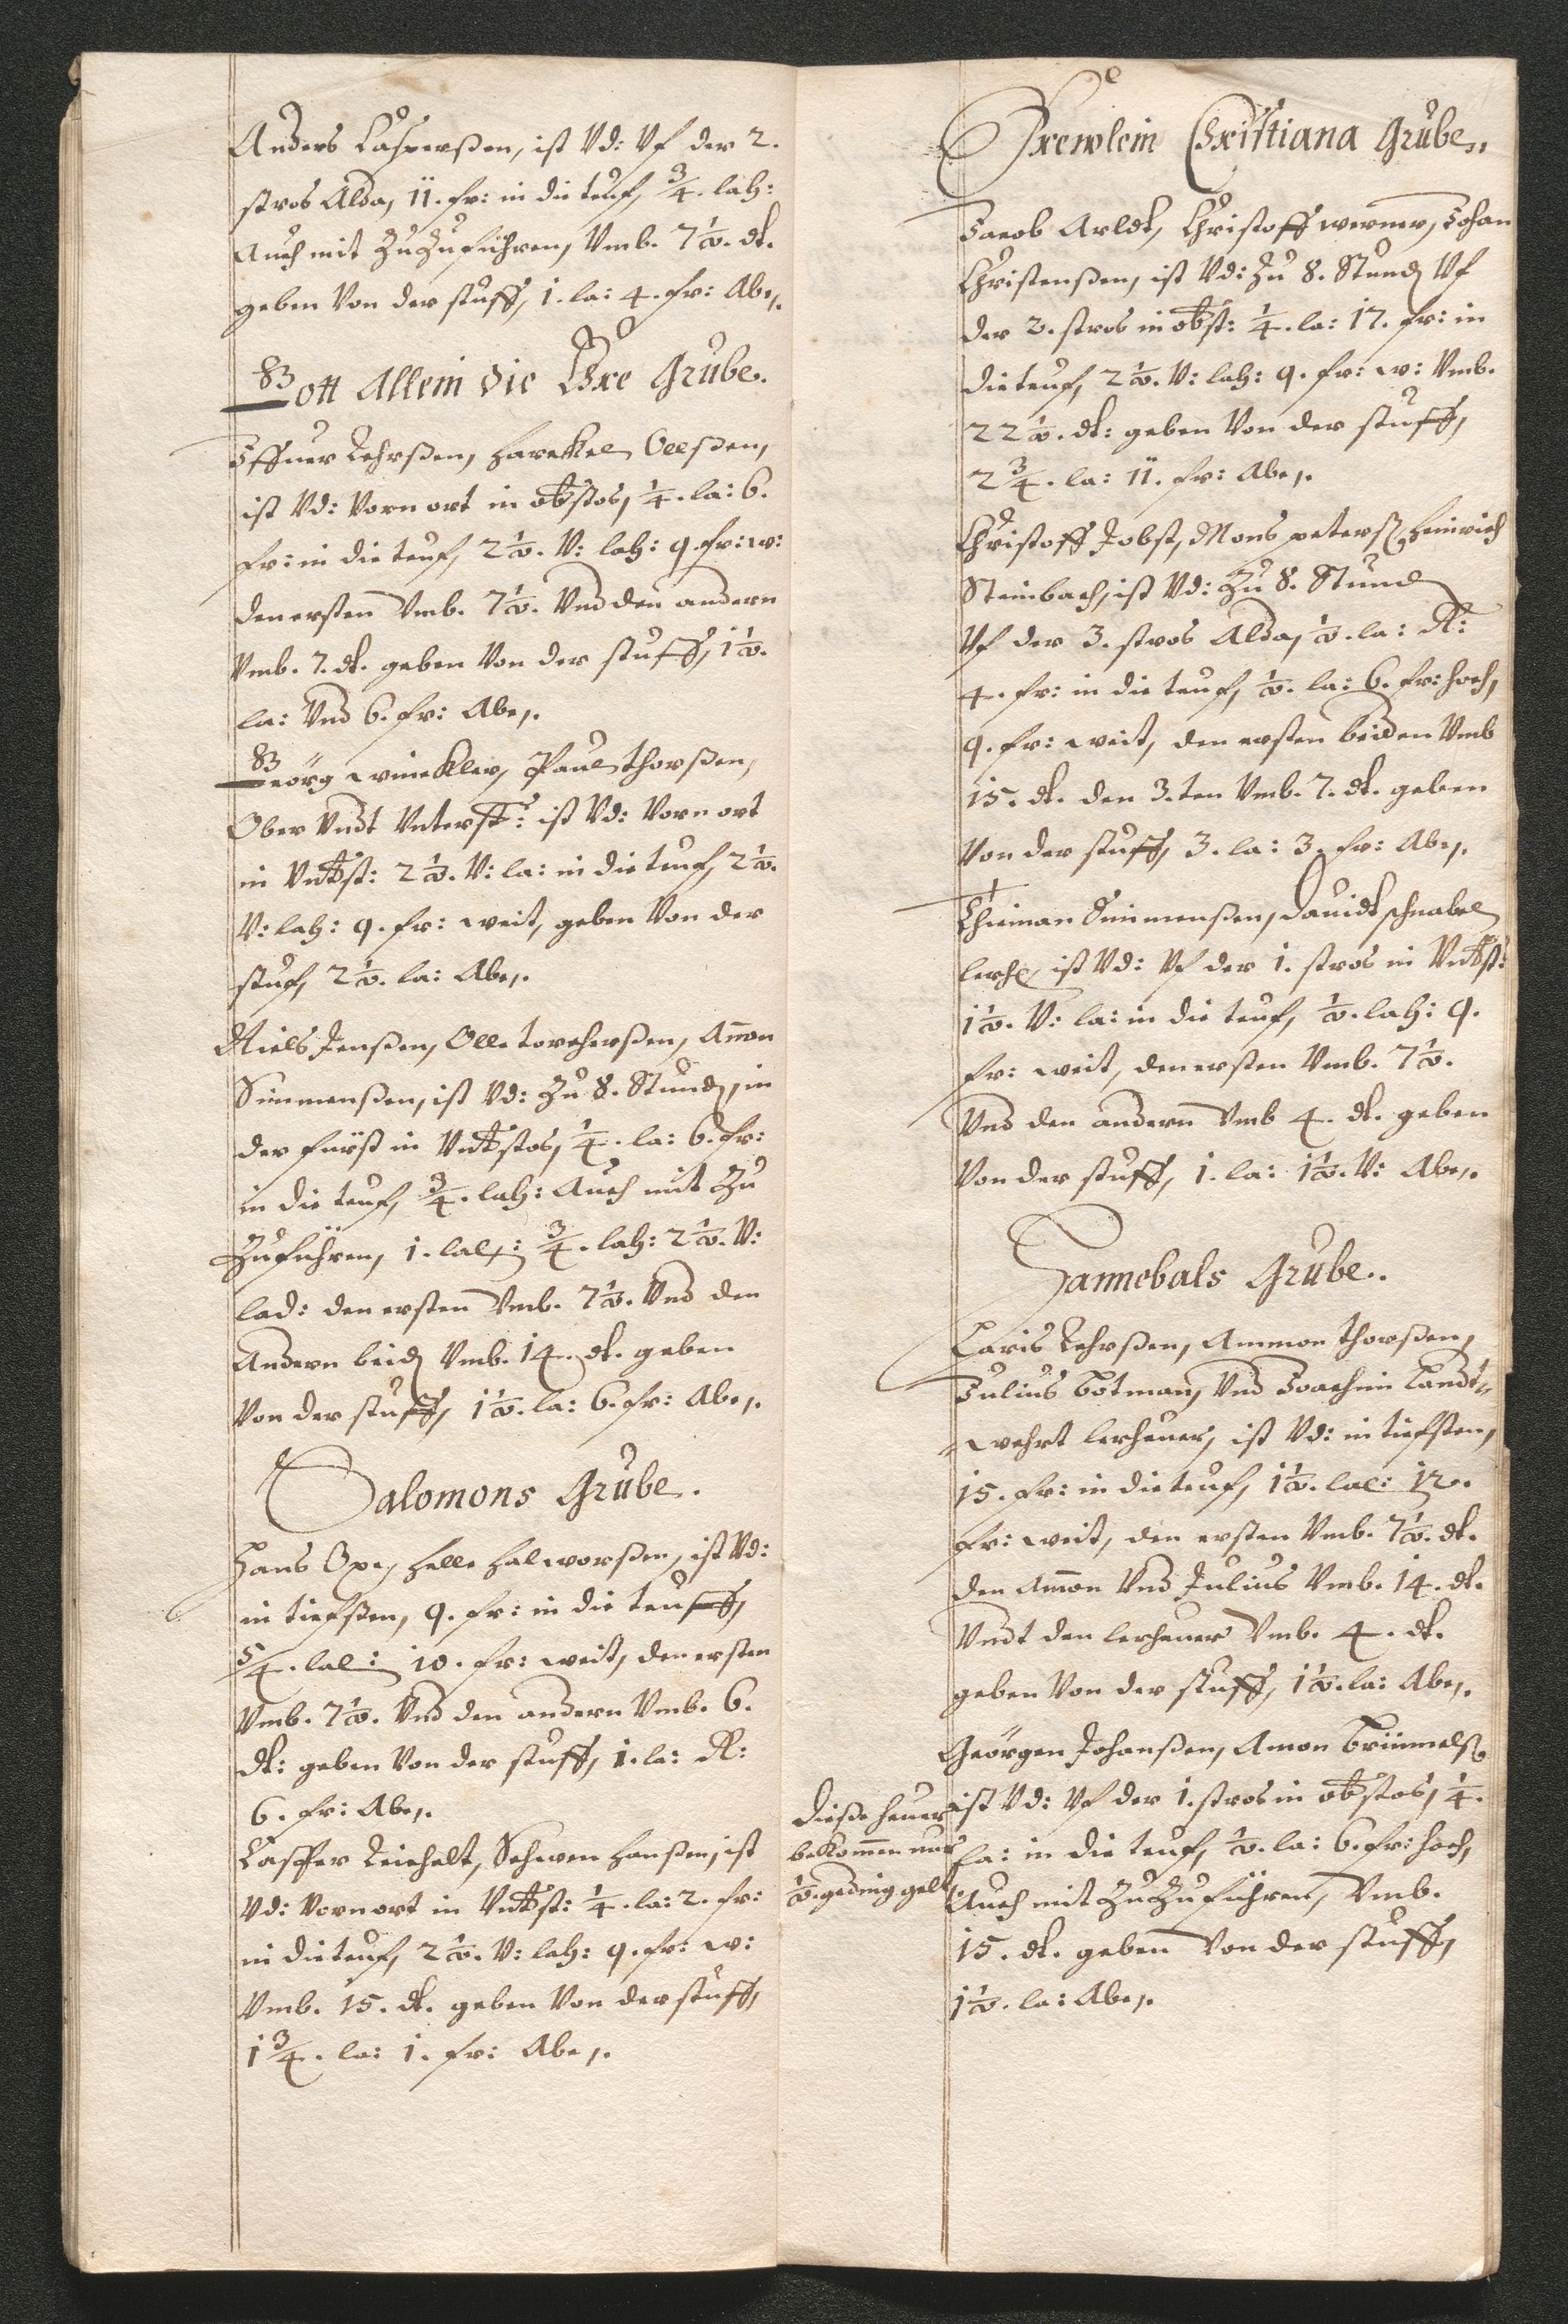 Anders Casperßen, ist Vd: Vf der 2.
stros Alda, 11. fr: in die teuf, 3/4. lah:
Auch mit ZuZuführen, Vmb. 7 1/2. dl.
geben Von der stuff, 1. la: 4. fr: Abe,.
Gott Allein die Ehre Grube.
Iffuer Lehrßen, Harekel Oelßen,
ist Vd: Vorn ort in obstos, 1/4. la: 6.
fr: in die teuf, 2 1/2. V: lah: 9. fr: w:
den ersten Vmb. 7 1/2. Vnd den andern
Vmb. 7. dl. geben Von der stuff, 1 1/2.
la: Vnd 6. fr: Abe,.
Geörg winckler, Paul thorßen,
Ober Vndt Vnterst: ist Vd: Vorn ort
in Vndst: 2 1/2. V: la: in die teuf, 2 1/2.
V: lah: 9. fr: weit, geben Von der
stuf, 2 1/2. la: Abe,.
Niels Jenßen, Olle torgerßen, Amon
Simmenßen, ist Vd: Zu 8. Stund, in
der fürst in Vndstos, 1/4. la: 6. fr:
in die teuf, 3/4. lah: Auch mit Zu
Zuführen, 1. lal: 3/4. lah: 2 1/2. V:
lad: den ersten Vmb. 7 1/2. Vnd den
Andern beid Vmb. 14. dl. geben
Von der stuff, 1 1/2. la: 6. fr: Abe,.
Salomons Grube.
Hans Oxe, Helle Halworßen, ist Vd:
in tiefsten, 9. fr: in die teuff,
5/4. lal: 10. fr: weit, den ersten
Vmb. 7 1/2. Vnd den andern Vmb. 6.
dl: geben Von der stuff, 1. la: Al:
6. fr: Abe,.
Casper Reichelt, Schwen Hanßen, ist
Vd: Vorn ort in Vndst: 1/4. la: 2. fr:
in die teuf, 2 1/2. V: lah: 9. fr: w:
Vmb. 15. dl. geben Von der stuff,
1 3/4. la: 1. fr: Abe,.
Frewlein Christiana Grube,.
Jacob Arldt, Christoff werner, Johan
Christenßen, ist Vd: Zu 8. Stund Vf
der 2. stros in obst: 1/4. la: 17. fr: in
die teuf, 2 1/2. V: lah: 9. fr: w: Vmb.
22 1/2. dl: geben Von der stuff,
2 3/4. la: 11. fr: Abe,.
Christoff Jobst, Mons peterß, Heinrich
Steinbach, ist Vd: Zu 8. Stund
Vf der 3. stros Alda, 1/2. la: Al:
4. fr: in die teuf, 1/2. la: 6. fr: hoch,
9. fr: weit, den ersten beiden Vmb
15. dl. den 3.ten Vmb. 7. dl. geben
Von der stuff, 3. la: 3. fr: Abe,.
Thieman Simmenßen, Dauidt schnabel
lerh, ist Vd: Vf der 1. stros in Vndst:
1 1/2. V: la: in die teuf, 1/2. lah: 9.
fr: weit, den ersten Vmb. 7 1/2.
Vnd den andern Vmb 4. dl. geben
Von der stuff, 1. la: 1 1/2. V: Abe,.
Hannebals Grube..
Laris Lehrßen, Ammon thorßen,
Julius botman, Vnd Joachim Landt-
-wehrt lerheuer, ist Vd: in tiefsten,
15. fr: in die teuf, 1 1/2. lal: 12.
fr: weit, den ersten Vmb. 7 1/2. dl.
den Amon Vnd Julius Vmb. 14. dl.
Vndt den lerheuer Vmb. 4. dl.
geben Von der stuff, 1 1/2. la: Abe,.
Geörgen Johanßen, Amon brümmelß,
ist Vd: Vf der 1. stros in obstos, 1/4.
la: in die teuf, 1/2. la: 6. fr: hoch,
Auch mit ZuZuführen, Vmb.
15. dl. geben Von der stuff,
1 1/2. la: Abe,.
Dieße heuer
bekommen nur
1/2. geding gelt